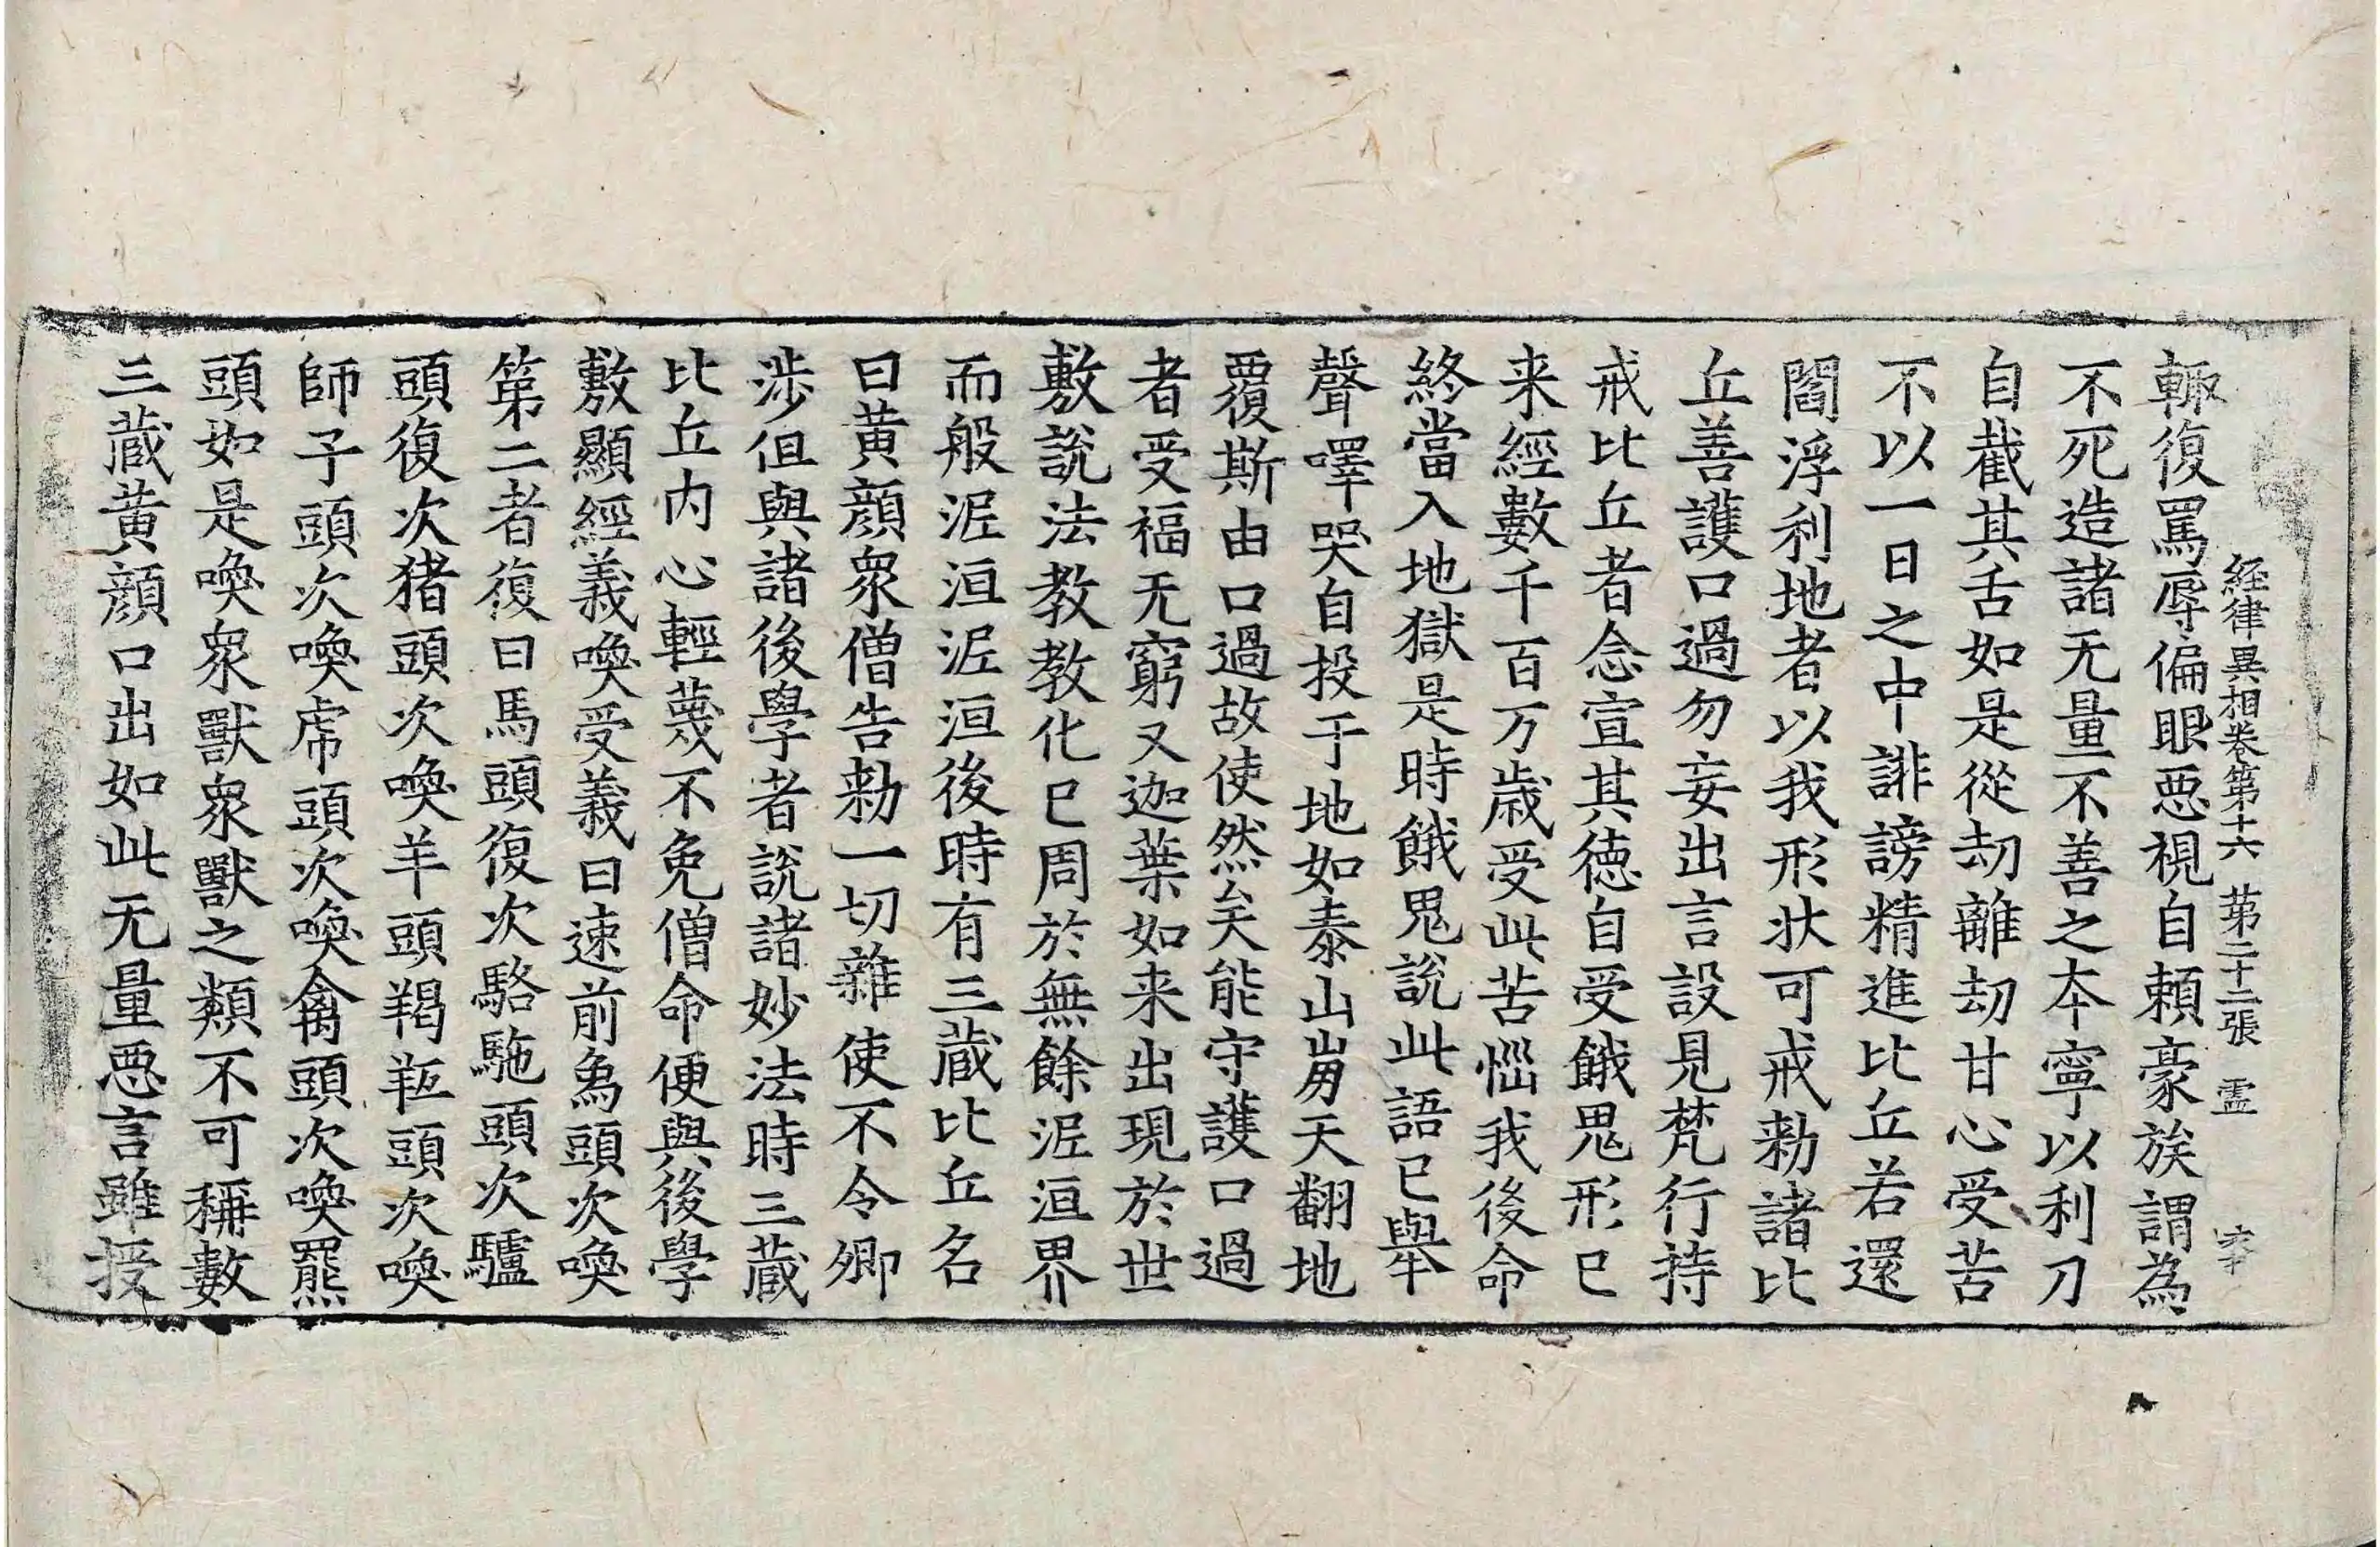 経律異相卷第十六 苐二十二張 霊
輙復罵辱偏眼惡視自頼豪族謂為
不死造諸无量不善之本寧以利刀
自截其舌如是從劫離劫甘心受苦
不以一日之中誹謗精進比丘若還
閻浮利地者以我形狀可戒勑諸比
丘善護口過勿妄出言設見梵行持
戒比丘者念宣其德自受餓鬼形已
来經數千百万歲受此苦惱我後命
終當入地獄是時餓鬼說此語已舉
聲嘷哭自投于地如泰山崩天翻地
覆斯由口過故使然矣能守護口過
者受福无窮又迦葉如来出現於世
敷說法教教化已周於無餘泥洹界
而般泥洹泥洹後時有三藏比丘名
曰黄顔衆僧告勑一切雜使不令卿
涉但與諸後學者說諸妙法時三藏
比丘内心輕蔑不免僧命便與後學
敷顯經義喚受義曰速前象頭次喚
第二者復曰馬頭復次駱駞頭次驢
頭復次猪頭次喚羊頭羯羝頭次喚
師子頭次喚虎頭次喚禽頭次喚羆
頭如是喚衆獸衆獸之類不可稱數
三藏黄顔口出如此无量惡言雖授